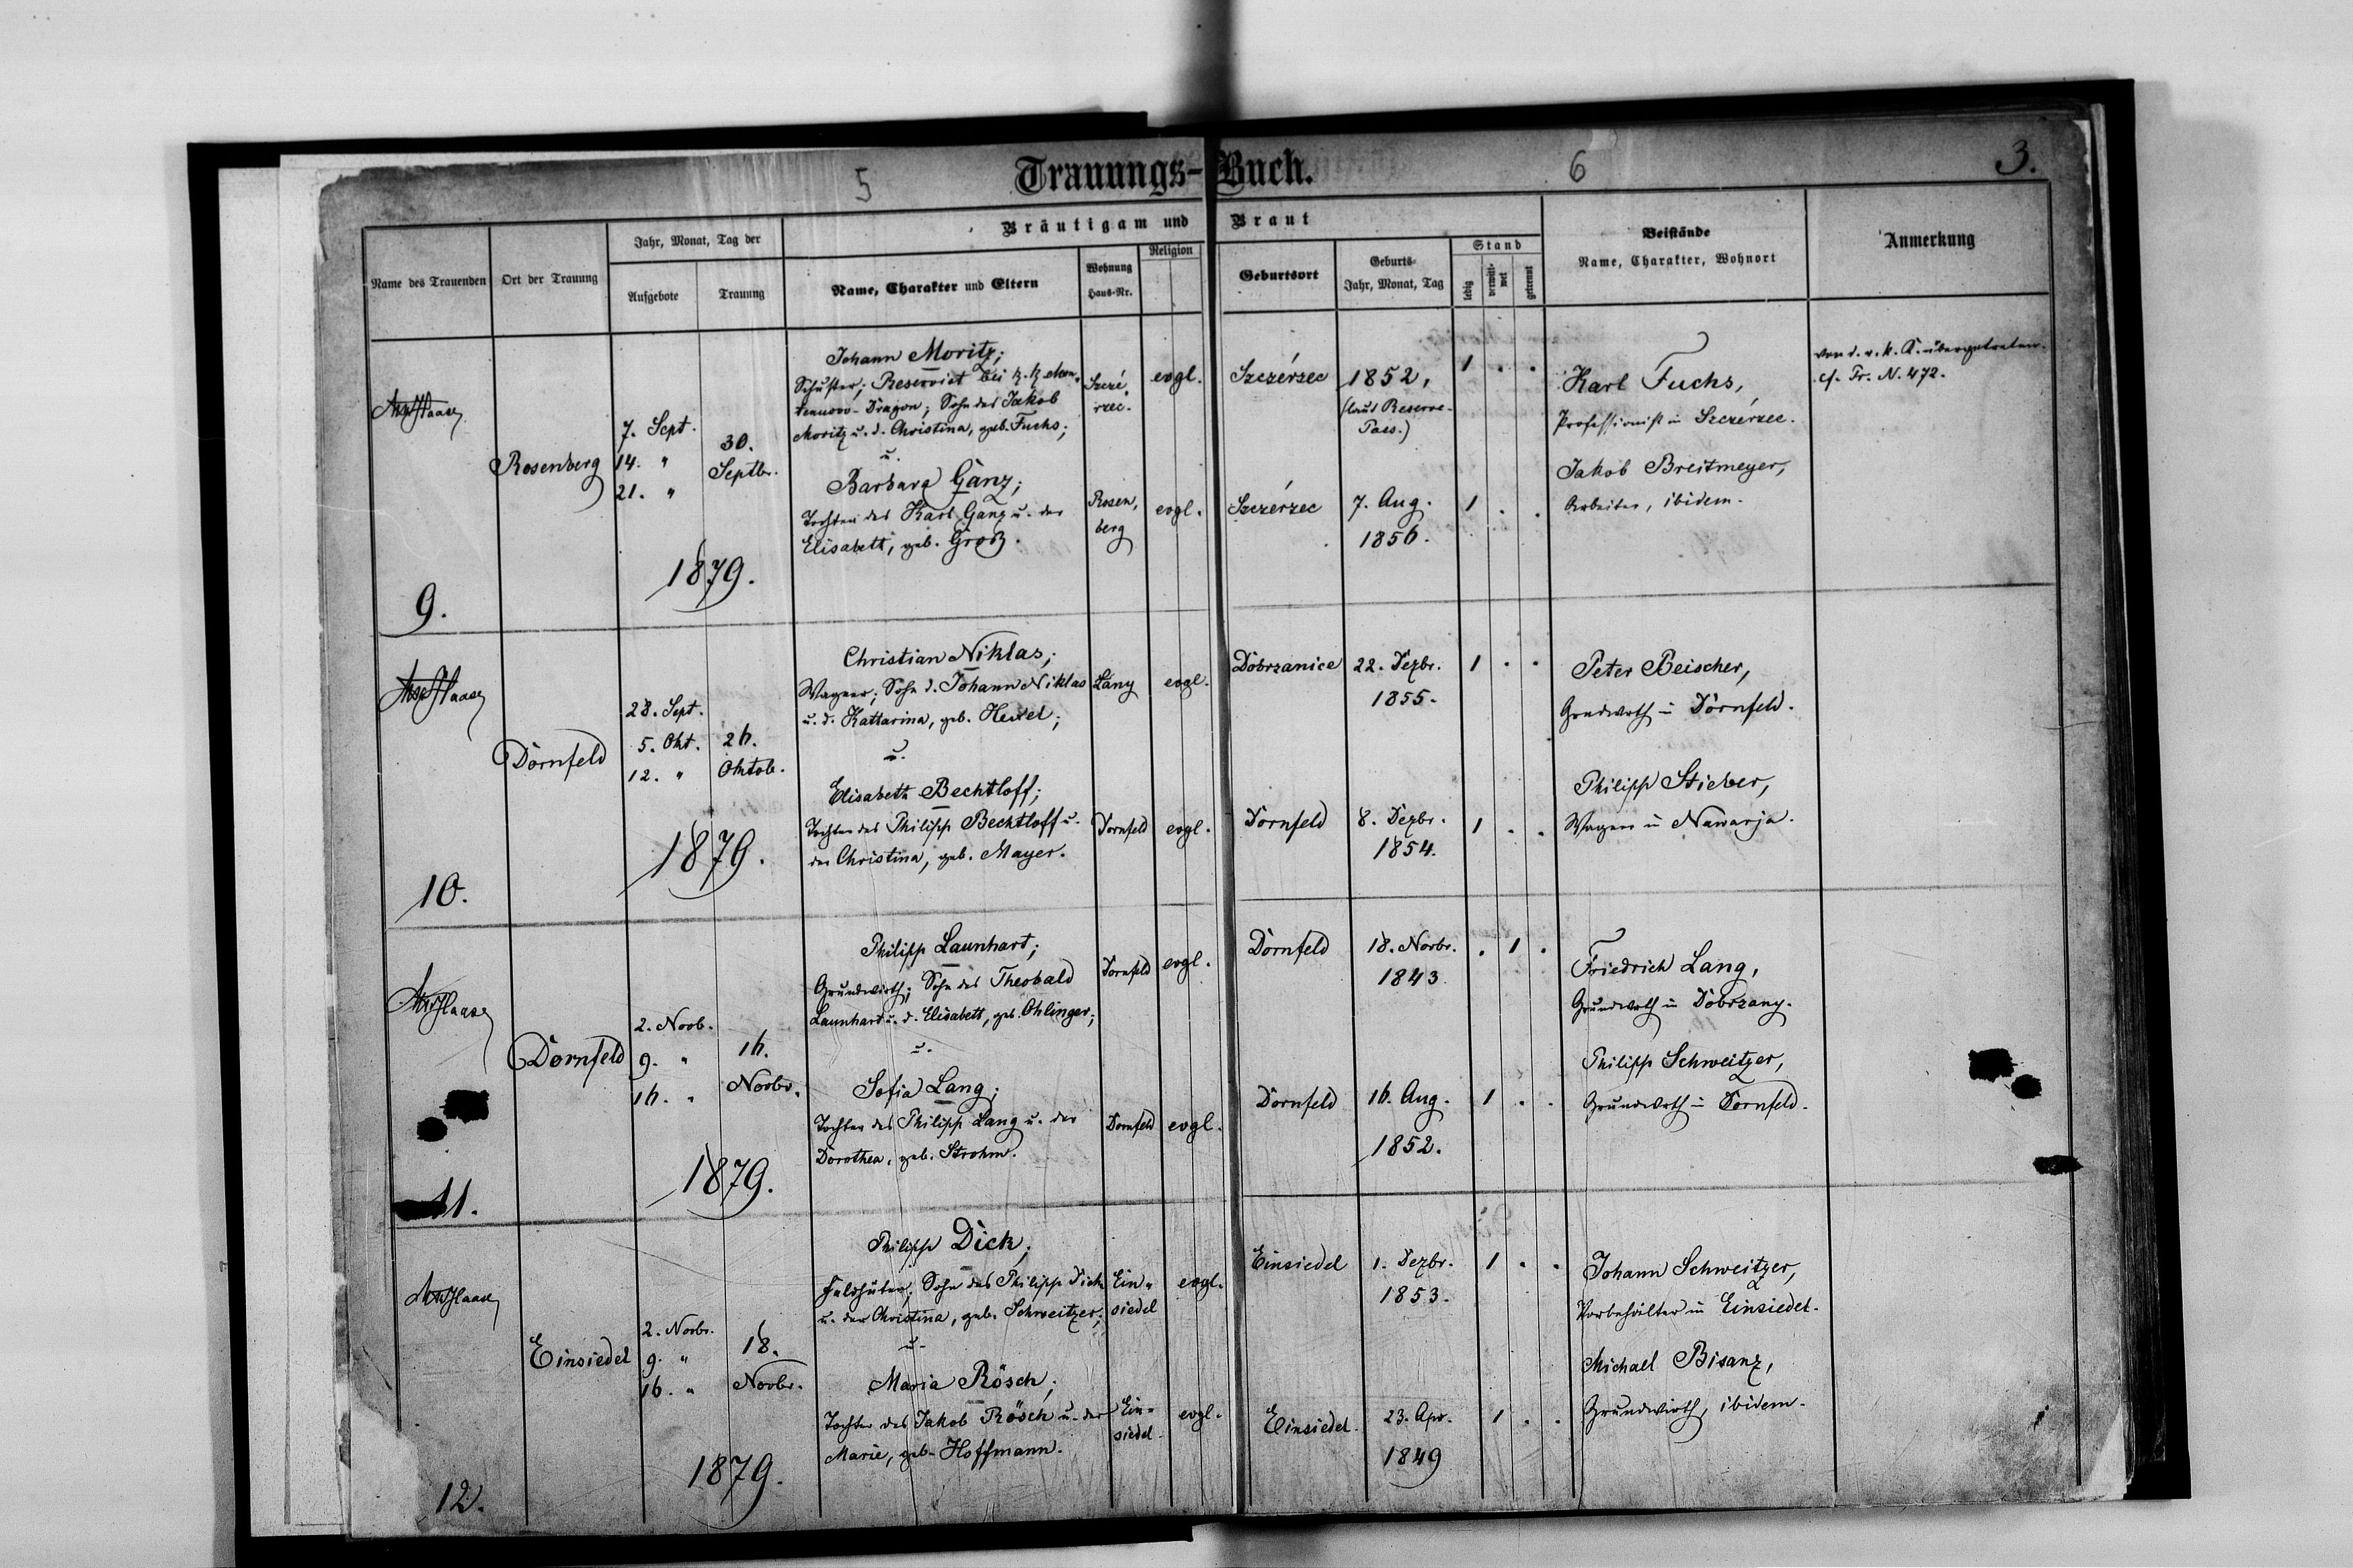 5
Trauungs-Buch.
6
3.
Name des Trauenden
Ort der Trauung
Jahr, Monat, Tag der
Aufgebote
Trauung
Bräutigam und Braut
Name, Charakter und Eltern
Wohnung
Haus-Nr.
Religion
Geburtsort
Geburts-
Jahr, Monat, Tag
Stand
ledig
verwitt-
wet
getrennt
Beistände
Name, Charakter, Wohnort
Anmerkung
Haase
9.
Rosenberg
7. Sept.
14. "
21. "
30.
Septbr.
1879.
Johann Moritz;
Schuster; Reservist bei k. k.
Dragon; Sohn des Jakob
Moritz u. d. Christina, geb. Fuchs;
u.
Barbara Ganz;
Tochter des Karl Ganz u. der
Elisabeth, geb. Groß.
Szczé-
rzec.
evgl.
Rosen-
berg
evgl.
Szczérzec
1852,
(laut Reserve-
Pass.)
1 . .
Szczérzec
7. Aug.
1856.
1 . .
Karl Fuchs,
Professionist in Szczérzec.
Jakob Breitmeyer,
Arbeiter, ibidem.
von d. r. k. K. übergetreten.
cf. Tr. N. 472.
Haase
10.
Dornfeld
28. Sept.
5. Okt.
12. "
26.
Oktob.
1879.
Christian Niklas;
Wagner; Sohn d. Johann Niklas
u. d. Kattarina, geb.
u.
Elisabeth Bechtloff;
Tochter des Philipp Bechtloff u.
der Christina, geb. Mayer.
Lany
evgl.
Dornfeld
evgl.
Dobrzanice
22. Dezbr.
1855.
1 . .
Dornfeld
8. Dezbr.
1854.
1 . .
Peter Beischer,
Grndwrth in Dornfeld.
Philipp Stieber,
Wagner in Nawarja.
Haase
11.
Dornfeld
2. Novb.
9. "
16. "
16.
Novbr.
1879.
Philipp Launhart;
Grundwirth; Sohn des Theobald
Launhart u. d. Elisabeth, geb. Ohlinger;
u.
Sofia Lang;
Tochter des Philipp Lang u. der
Dorothea, geb. Strohm.
Dornfeld
evgl.
Dornfeld
evgl.
Dornfeld
18. Novbr.
1843
. 1 .
Dornfeld
16. Aug.
1852.
1 . .
Friedrich Lang,
Grundwrth in Dobrzany.
Philipp Schweitzer,
Grundwrth in Dornfeld.
Haase
12.
Einsiedel
2. Novbr.
9. "
16. "
18.
Novbr.
1879.
Philipp Dick;
Feldhüter; Sohn des Philipp Dick
u. der Christina, geb. Schweitzer;
u.
Maria Rösch;
Tochter des Jakob Rösch u. der
Marie, geb. Hoffmann.
Ein-
siedel
evgl.
Ein-
siedel.
evgl.
Einsiedel
1. Dezbr.
1853.
1 . .
Einsiedel.
23. Apr.
1849
1 . .
Johann Schweitzer,
Vorbehälter in Einsiedel.
Michael Bisanz,
Grundwirth, ibidem.